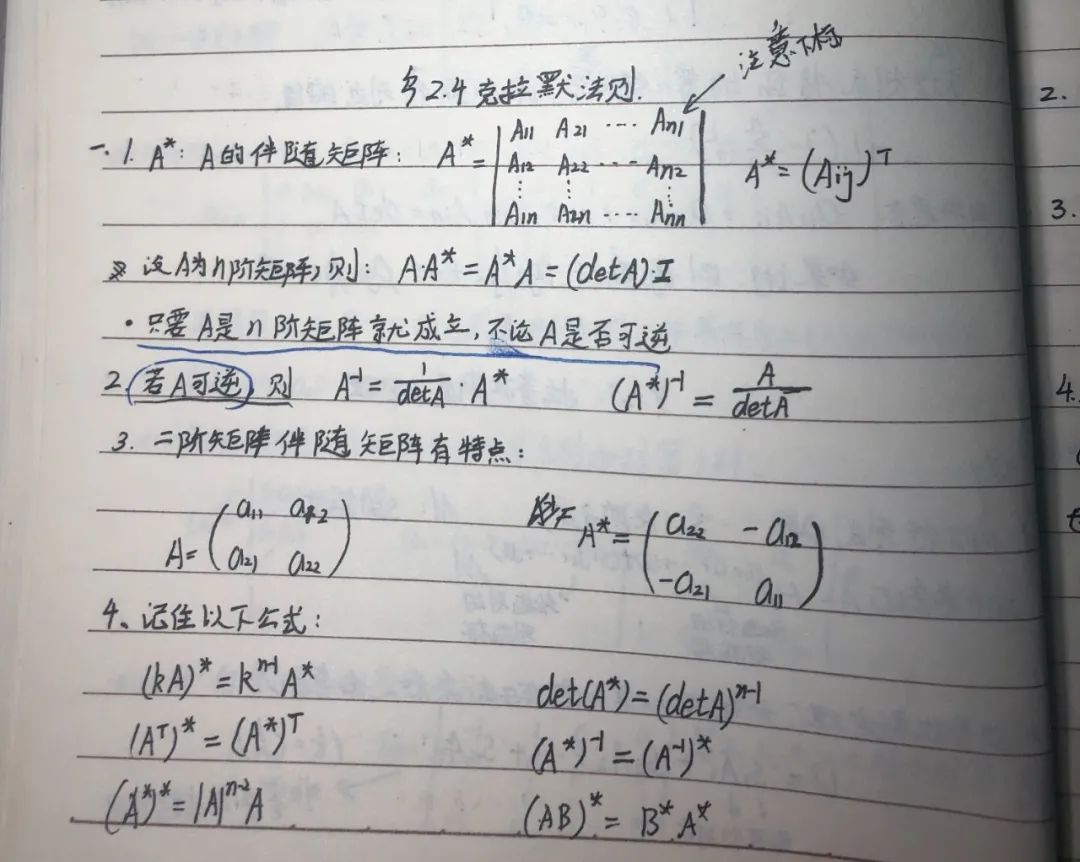 注意下标
§2.4 克拉默法则.
一. 1. A*: A的伴随矩阵: A* = | A11 A21 ···· An1 | A* = (Aij)ᵀ
| A12 A22 ···· An2 |
| ⋮ ⋮ ⋮ |
| A1n A2n ···· Ann |
设A为n阶矩阵, 则: A·A* = A*A = (detA)·I
· 只要A是n阶矩阵就成立, 不论A是否可逆
2. 若A可逆, 则 A⁻¹ = 1/detA · A* (A*)⁻¹ = A/detA
3. 二阶矩阵伴随矩阵有特点:
A = ( a11 a12 A* = ( a22 -a12
a21 a22 ) -a21 a11 )
4、记住以下公式:
(kA)* = kⁿ⁻¹A* det(A*) = (detA)ⁿ⁻¹
(Aᵀ)* = (A*)ᵀ (A*)⁻¹ = (A⁻¹)*
(A*)* = |A|ⁿ⁻²A (AB)* = B*A*
2.
3.
4.